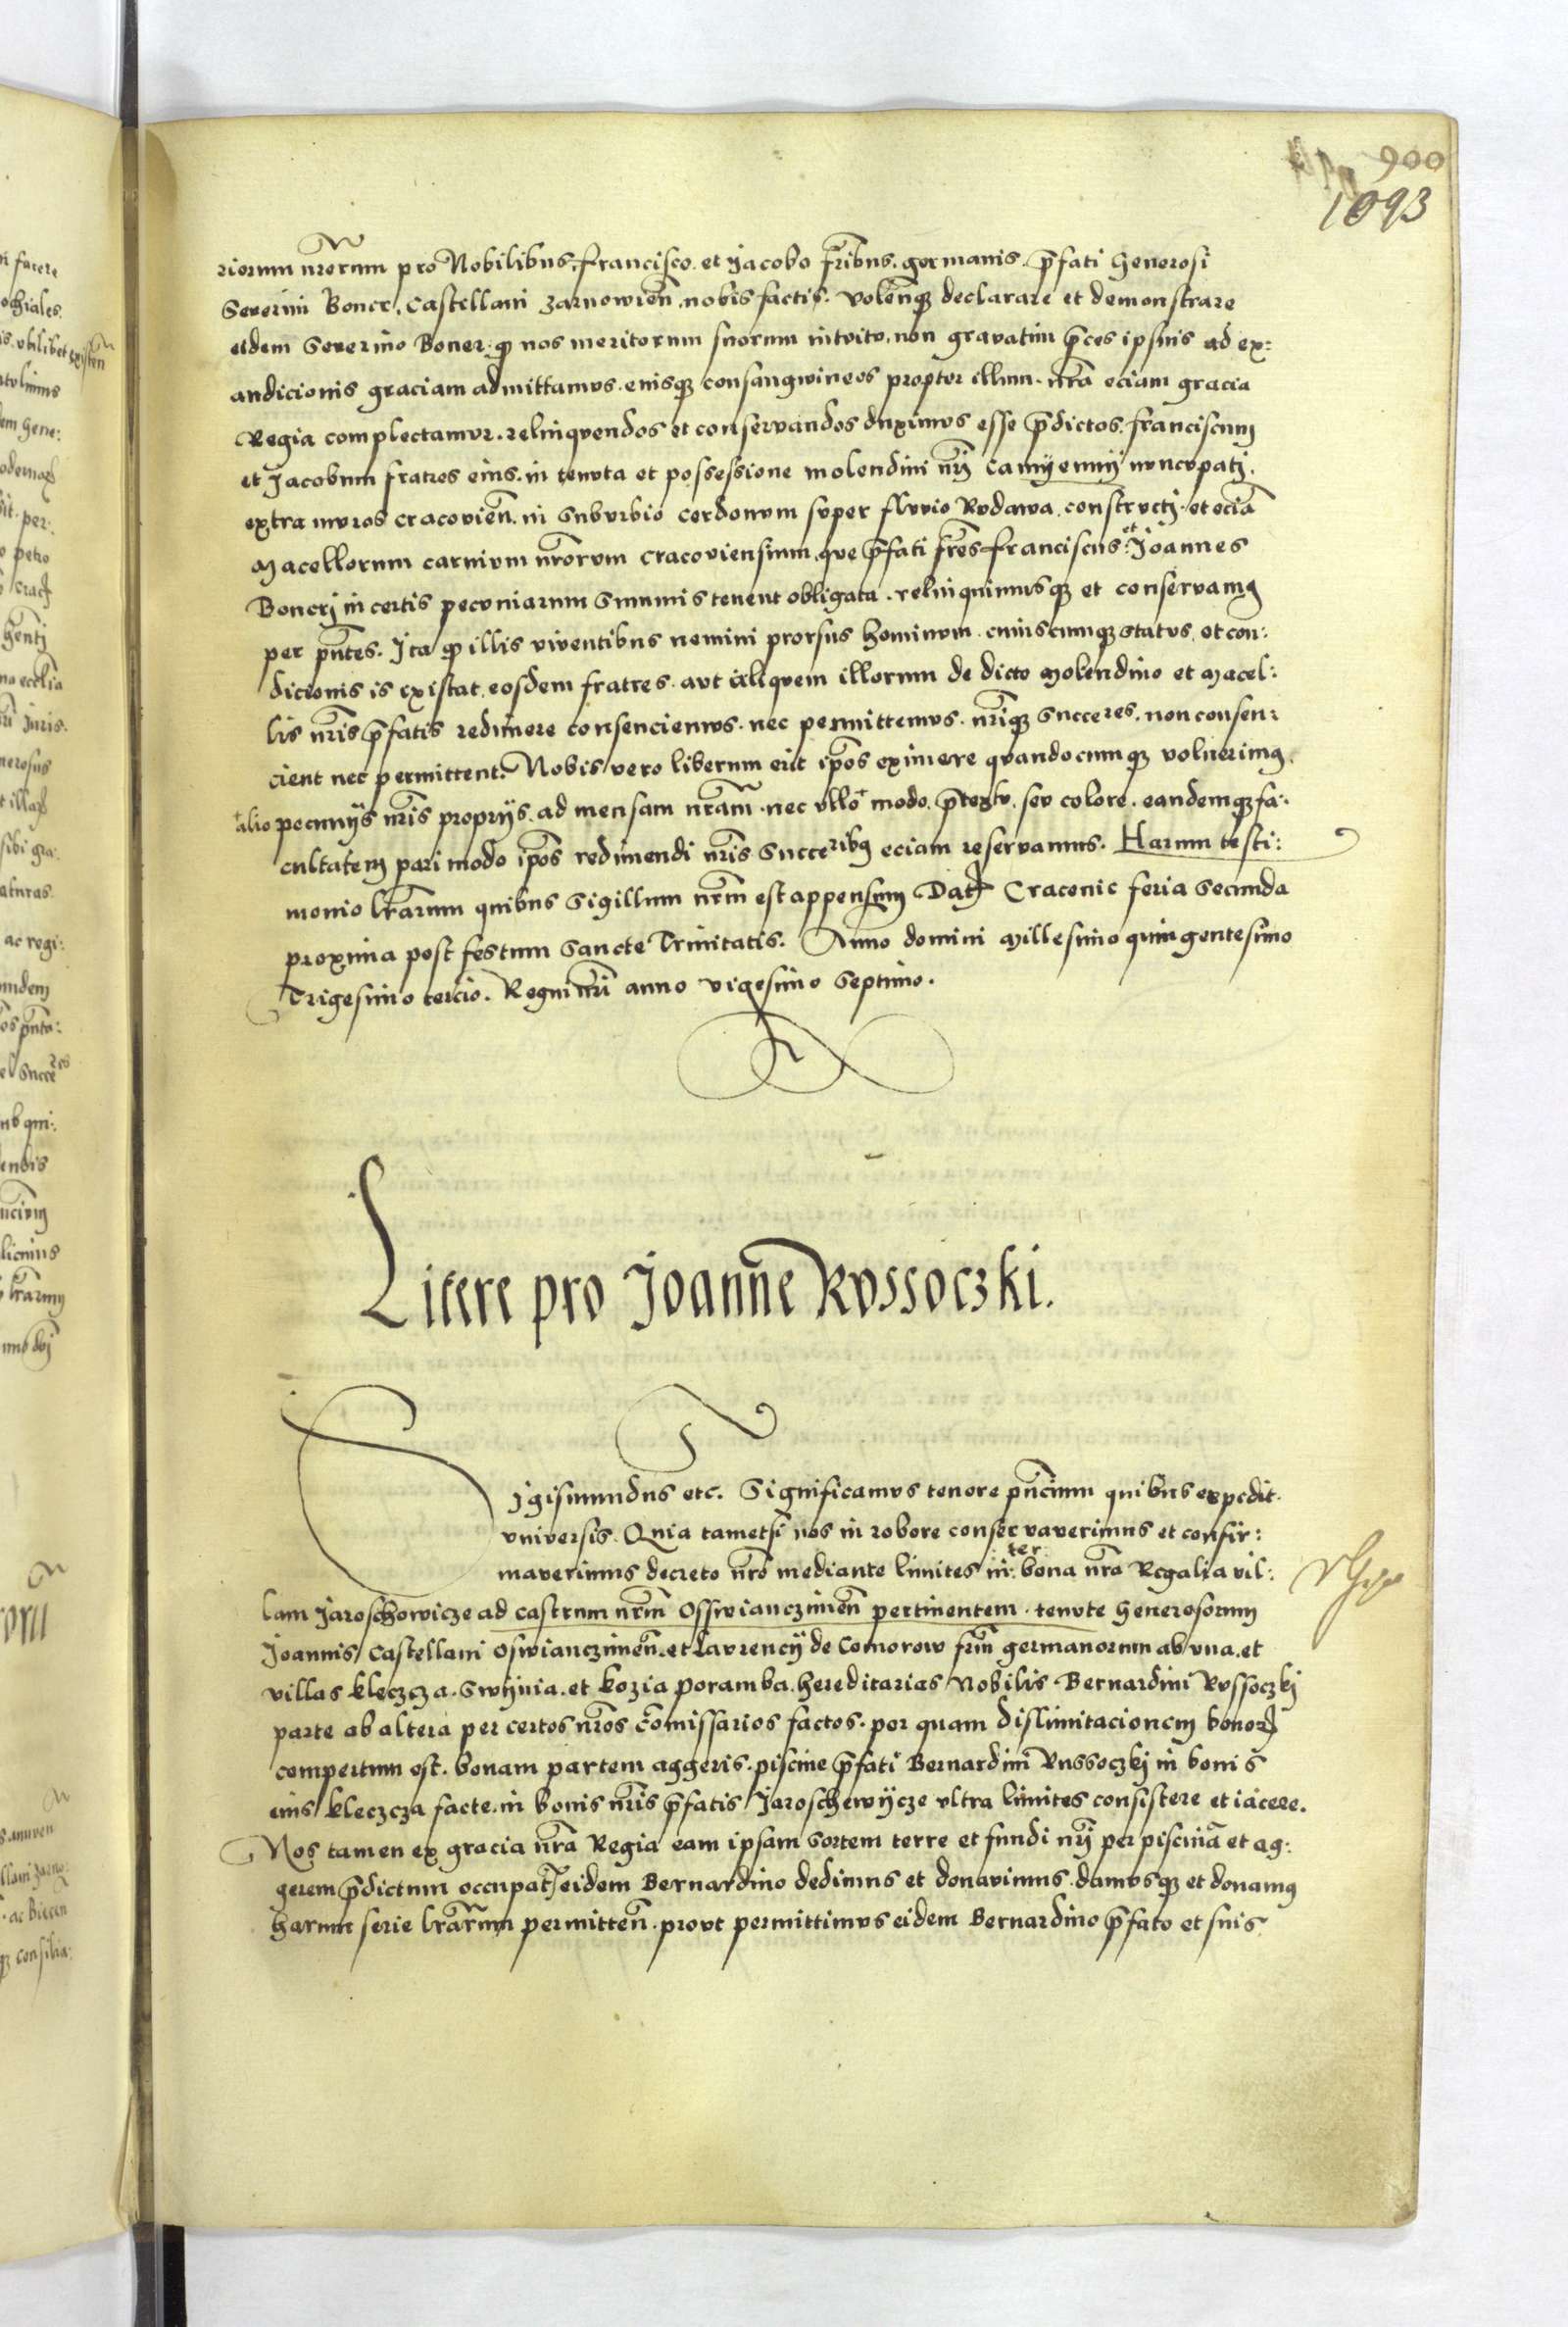 900
1093
riorum nrorum pro Nobilibus, Francisco et Jacobo fribus germanis pfati Generosi
Severini Boner, Castellani Zarnowien nobis factis. Volenqz declarare et demonstrare
eidem Severino Boner, qz nos meritorum suorum intuitu, non gravatim pces ipsius ad ex:
audicionis graciam admittamus, eiusqz consangwineos propter illum nra eciam gracia
Regia complectamur, relinquendos et conservandos duximus esse pdictos, Franciscum
et Jacobum fratres eius in tenuta et possessione molendini nrj Camyennij nuncupatj,
extra muros cracovien. in suburbio cerdonum super fluvio Rudawa constructj, et ecia
Macellorum carnium nrorum Cracoviensium, que pfati fres Franciscus et Joannes
Bonerj in certis pecuniarum summis tenent obligata, relinquimusqz et conservam9
per pntes. Ita qz illis viventibus nemini prorsus hominum cuiuscumqz status et con:
dicionis is existat, eosdem fratres aut aliquem illorum de dicto Molendino et Macel:
lis nris pfatis redimere consenciemus nec permittemus, nriqz Succeres non consen:
cient nec permittent. Nobis vero liberum erit ipos eximere quandocumqz voluerim9
pecunijs nris proprijs ad mensam nram, nec ullo + modo, ptextu, seu colore, eandemqz fa:
+ alio
cultatem pari modo ipos redimendi nris Succeribq eciam reservamus. Harum testi:
monio lrarum quibus Sigillum nrm est appensum Dat Cracovie feria secunda
proxima post festum Sancte Trinitatis. Anno domini Millesimo quingentesimo
Trigesimo tercio. Regni nri anno vigesimo septimo.
Litere pro Joanne Russoczki.
Sigismundus etc. Significamus tenore pncium quibus expedit
universis. Quia tametsi nos in robore conservaverimus et confir:
maverimus decreto nro mediante limites inter bona nra Regalia vil:
lam Jaroschowicze ad castrum nrm Osswianczimen pertinentem, tenute Generosorum
Joannis Castellani Oswianczimen. et Laurencij de Comorow frm germanorum ab una, et
villas Kleczcza, Swijnia, et Kozia Poramba, hereditarias Nobilis Bernardini Russoczkj
parte ab altera per certos nros comissarios factos, per quam dislimitacionem bonor
compertum est, bonam partem aggeris, piscine pfati Bernardini Russoczkj in bonis
eius Kleczcza facte, in bonis nris pfatis Jaroschewijcze ultra limites consistere et iacere.
Nos tamen ex gracia nra Regia eam ipsam sortem terre et fundi nrj per piscina et ag:
gerem pdictum occupat eidem Bernardino dedimus et donavimus, damusqz et donam9
harum serie lrarum permitten. prout permittimus eidem Bernardino pfato et suis